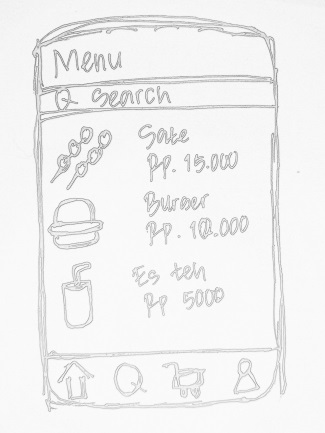 Menu
Search
Sate
Rp. 15.000
Burger
Rp.
Es teh
Rp 5000